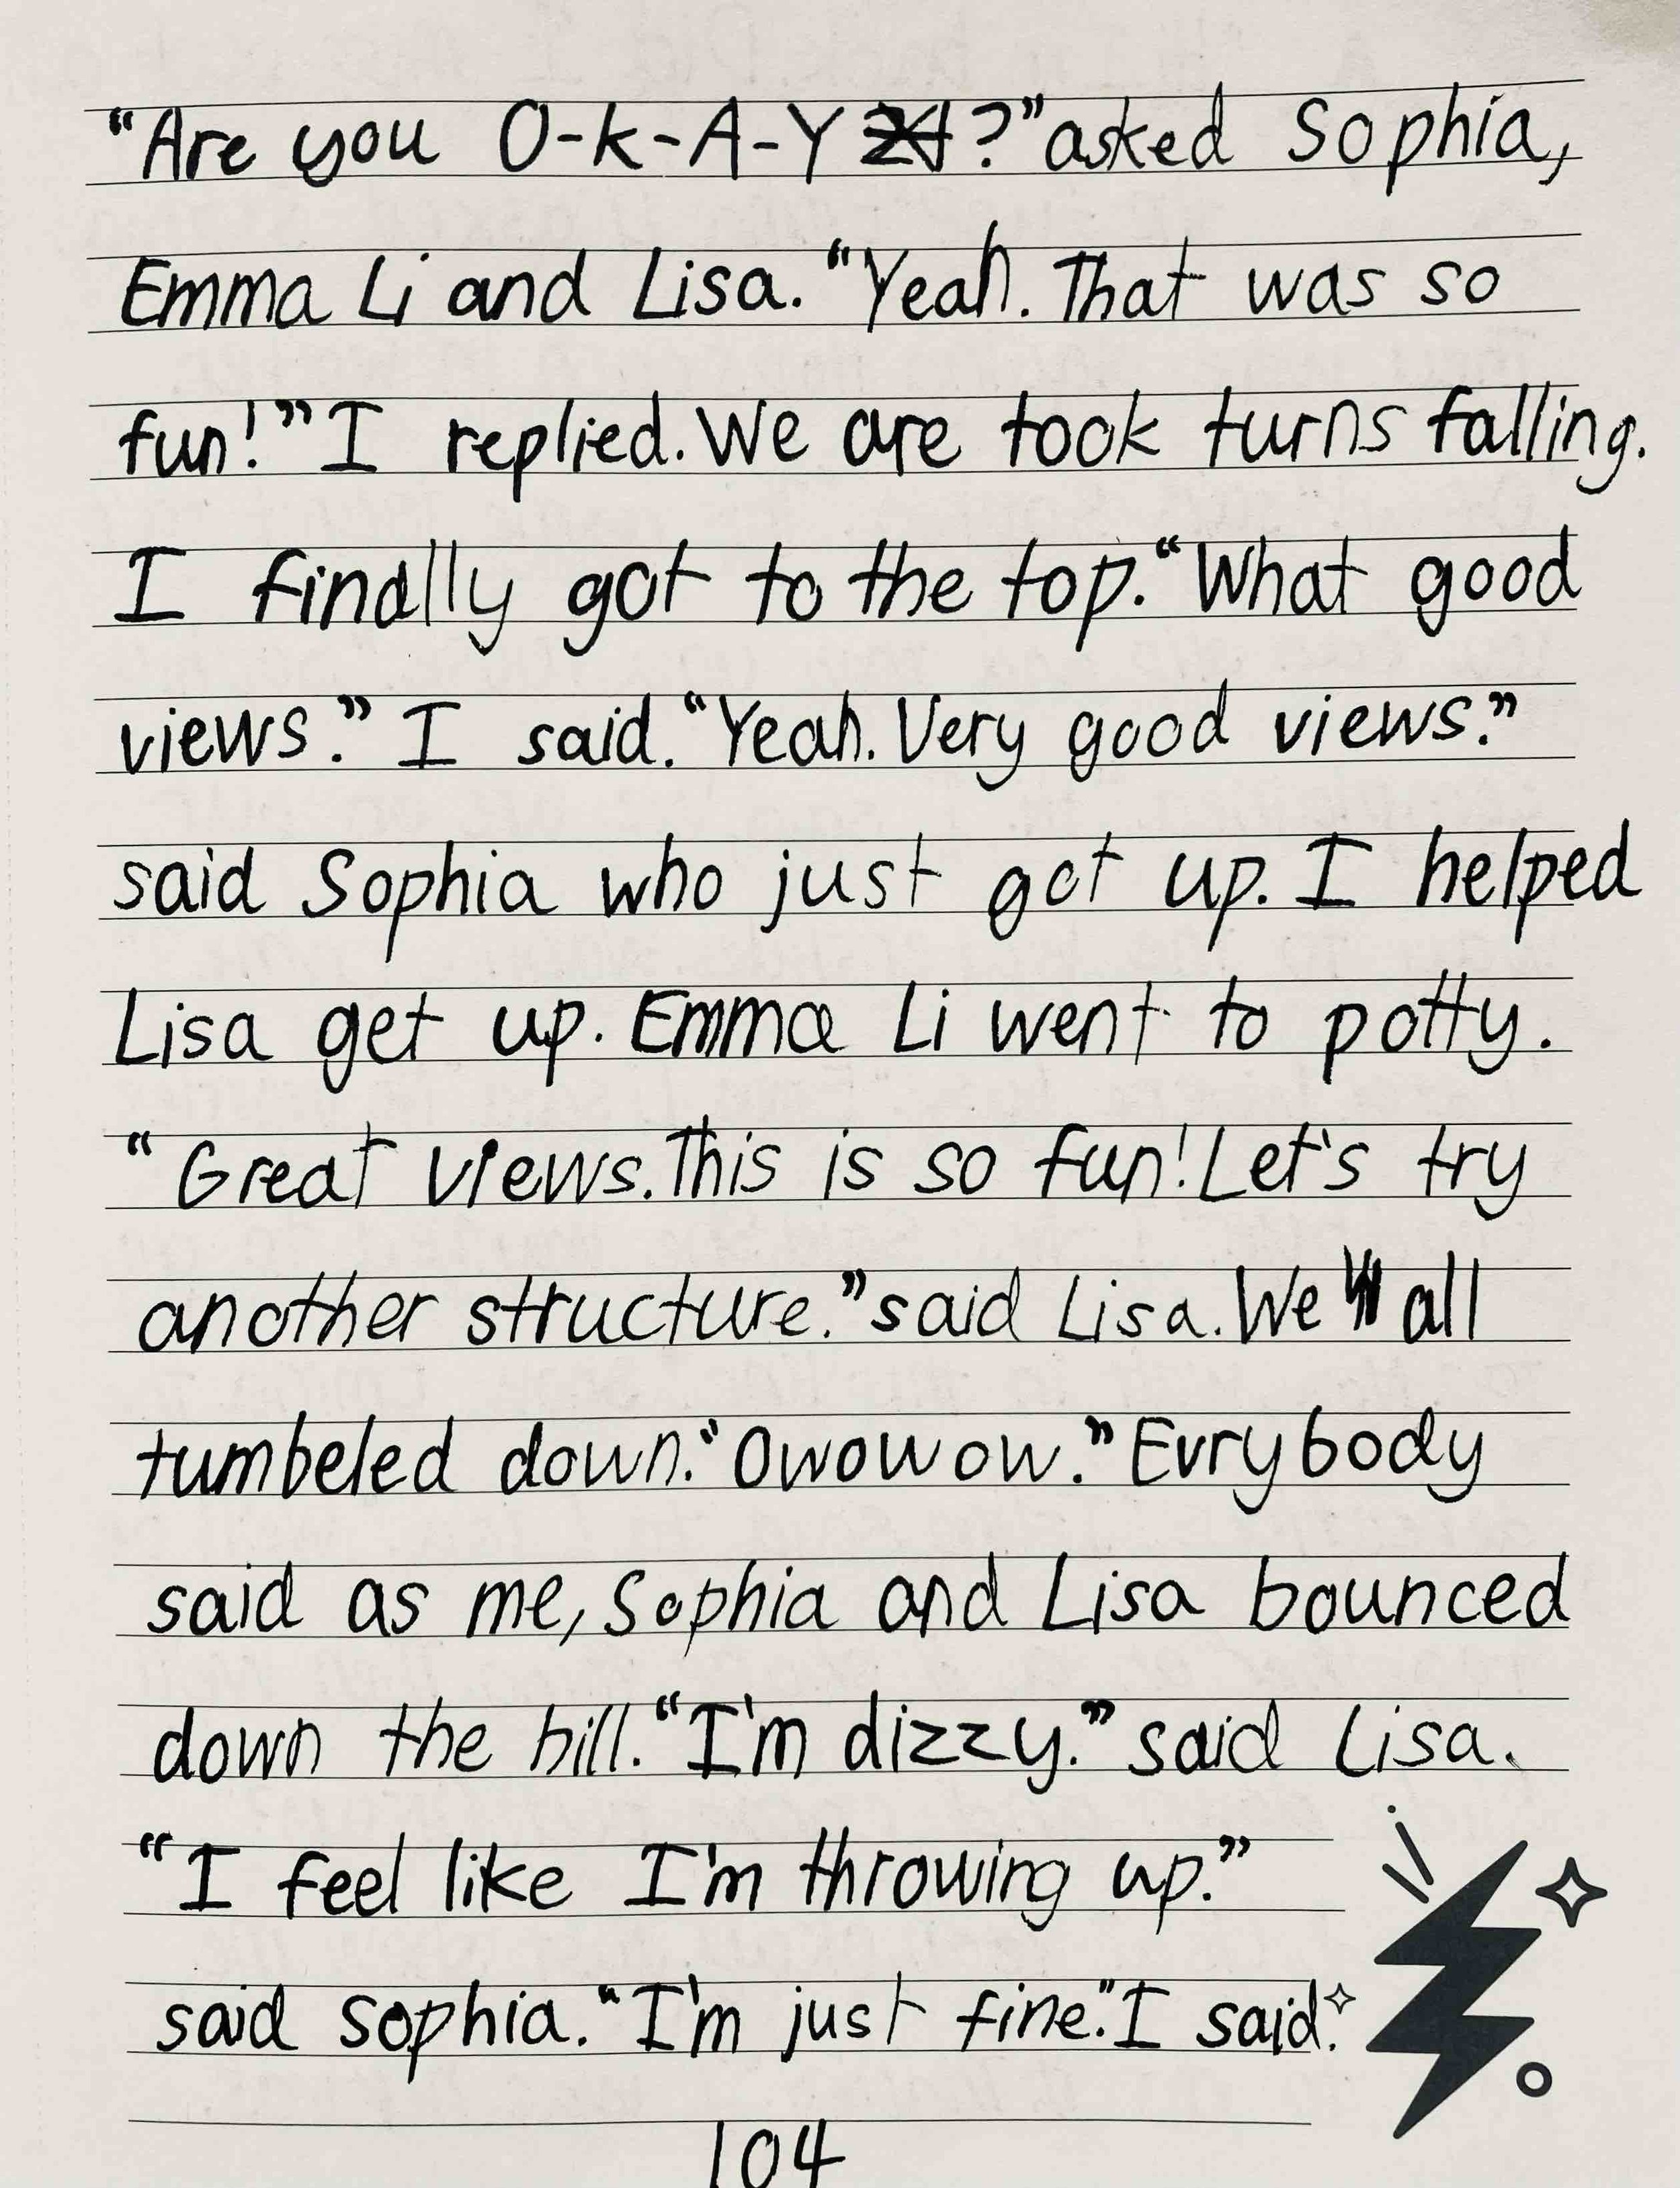 “Are you O-k-A-Y ?” asked Sophia,
Emma Li and Lisa. “Yeah. That was so
fun!” I replied. We are took turns falling.
I finally got to the top. “What good
views.” I said. “Yeah. Very good views.”
said Sophia who just got up. I helped
Lisa get up. Emma Li went to potty.
“Great views. This is so fun! Let's try
another structure.” said Lisa. We all
tumbeled down. “Owowow.” Evrybody
said as me, Sophia and Lisa bounced
down the hill. “I'm dizzy.” said Lisa.
“I feel like I'm throwing up.”
said sophia. “I'm just fine.” I said.
104